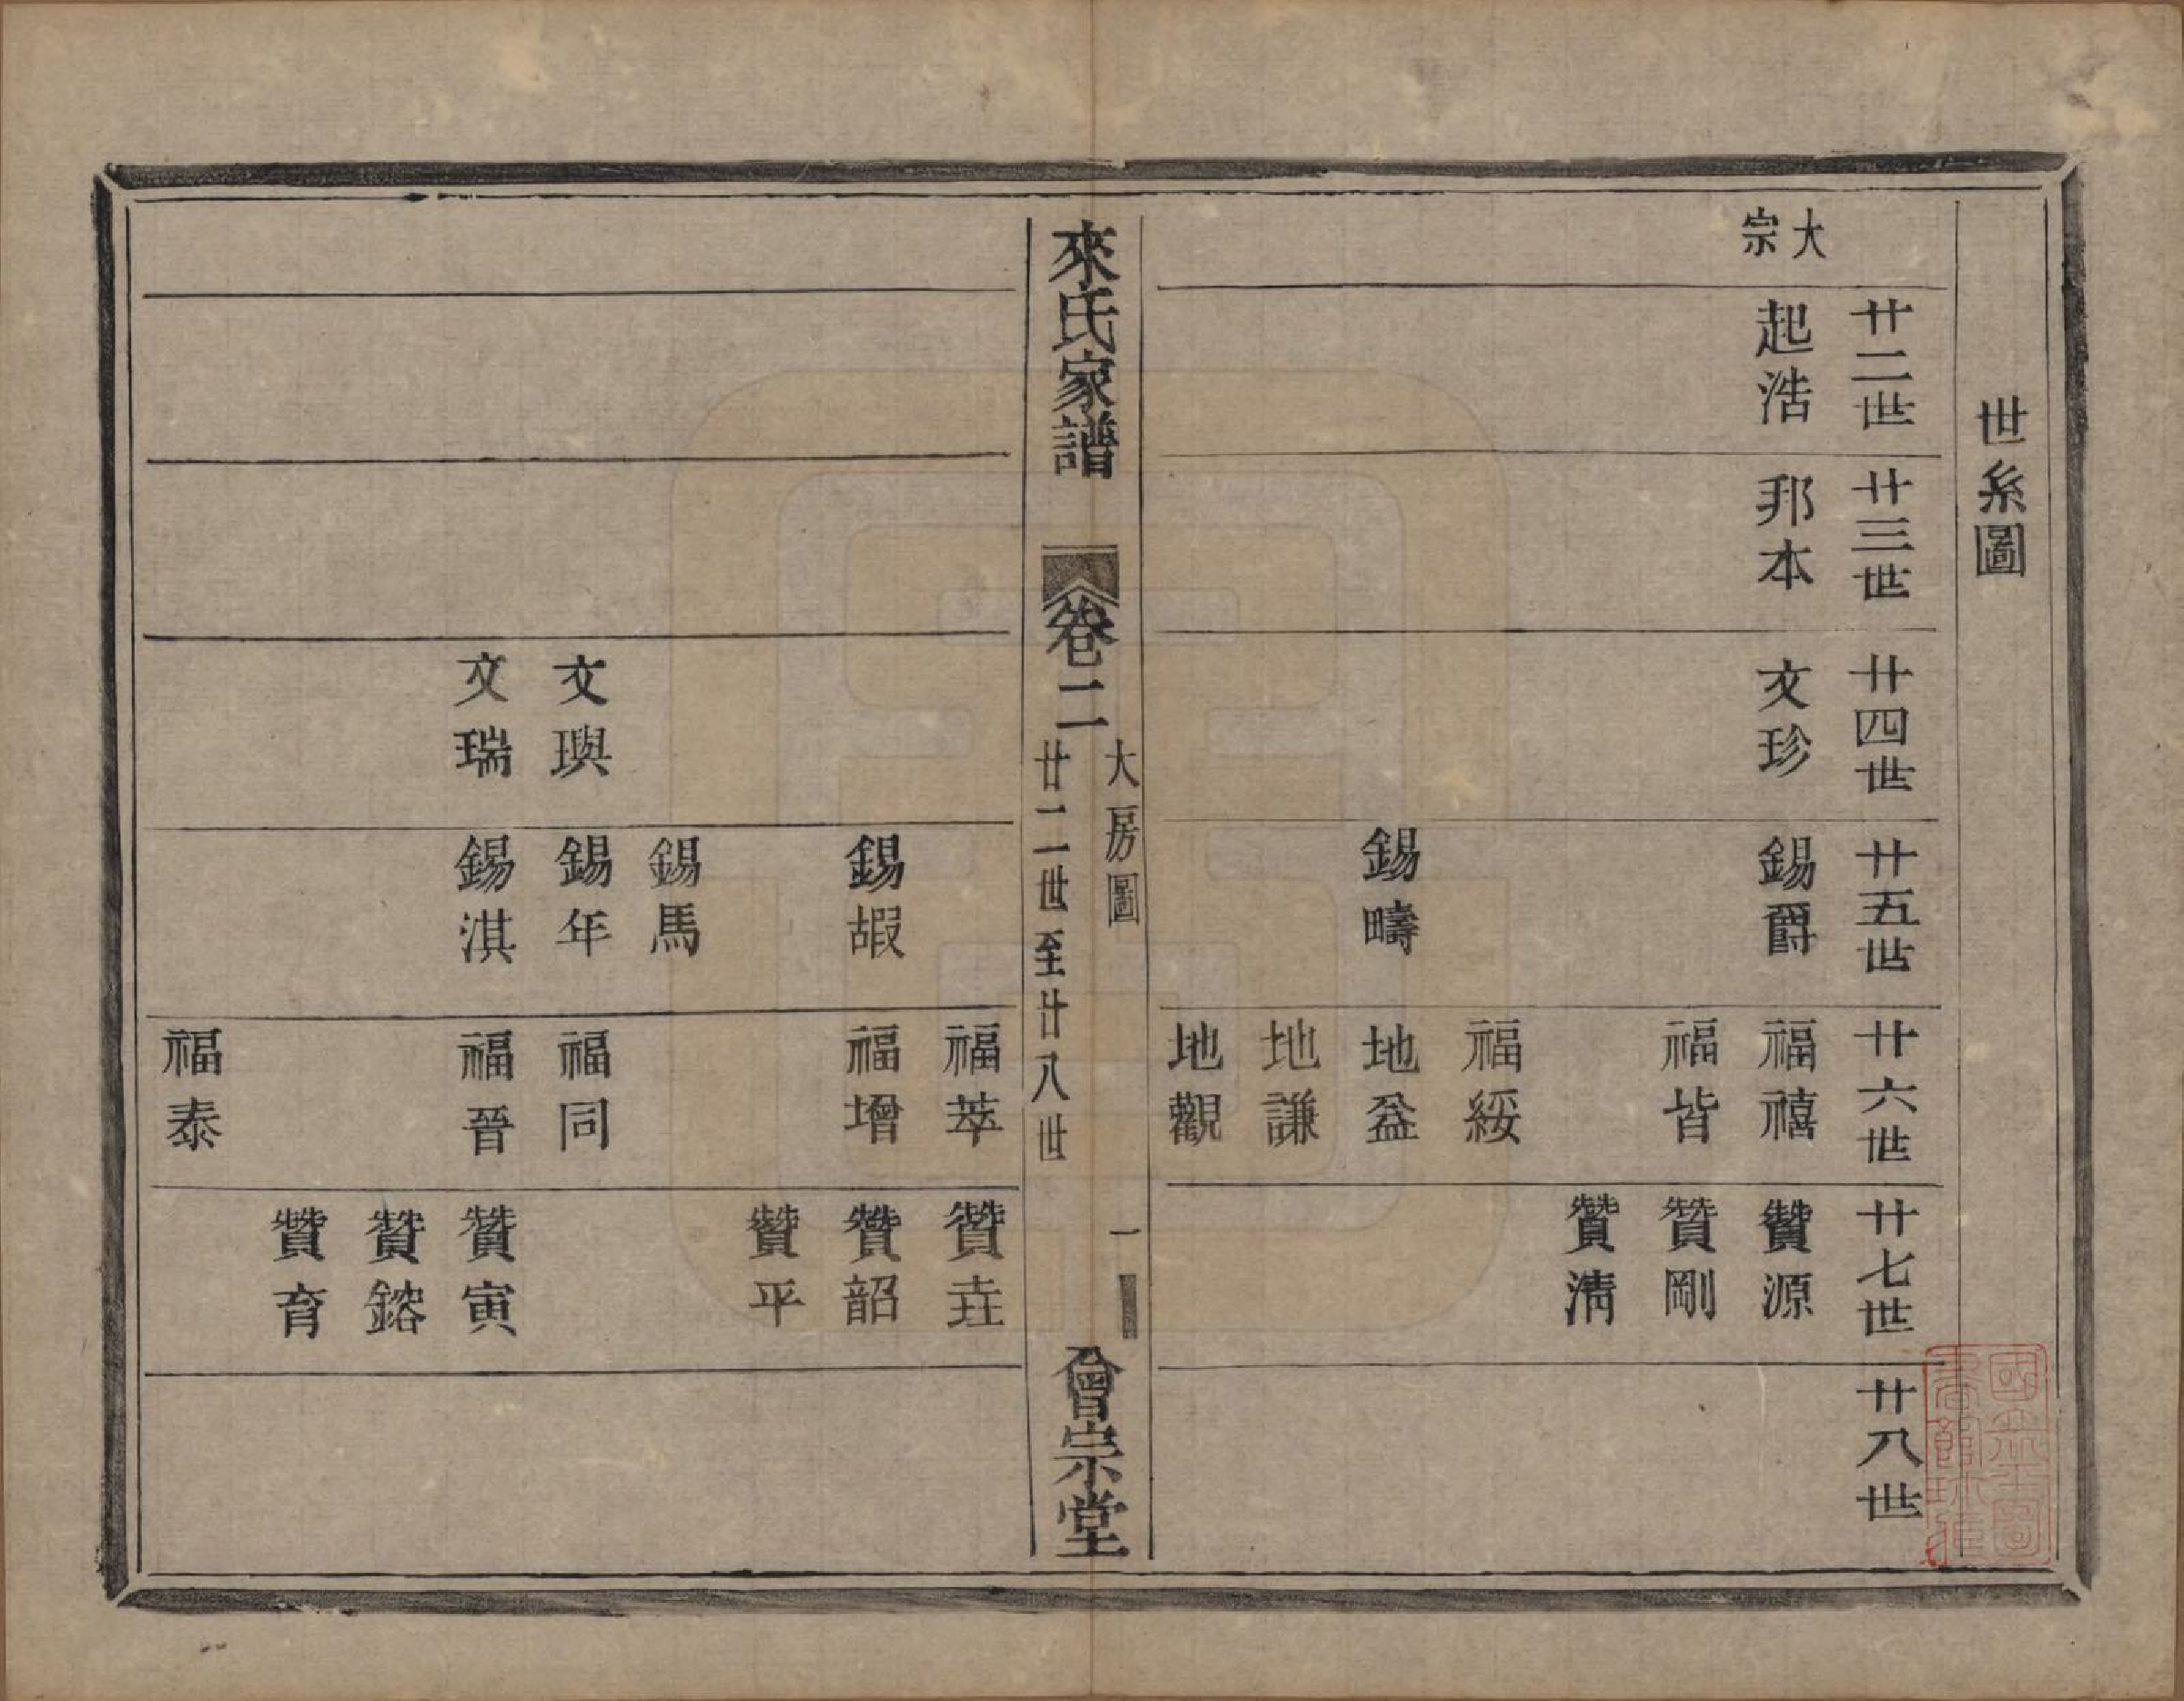 世系圖
廿二世 廿三世 廿四世 廿五世 廿六世 廿七世 廿八世
大宗 起浩 邦本 文珍 錫爵 福禧 贊源
福皆 贊剛
贊清
福綏
錫疇 地益
地謙
地觀
來氏家譜 卷二 大房圖 廿二世至廿八世 一 會宗堂
福萃 贊垚
錫嘏 福增 贊韶
贊平
錫馬
文璵 錫年 福同
文瑞 錫淇 福晉 贊寅
贊鎔
贊育
福泰
國立北平圖書館珍藏